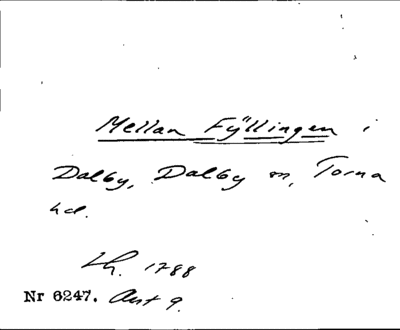 Mellan Fÿllingen i
Dalby, Dalby sn, Torna
hd.
Lh. 1788
Nr 6247. Akt 9.